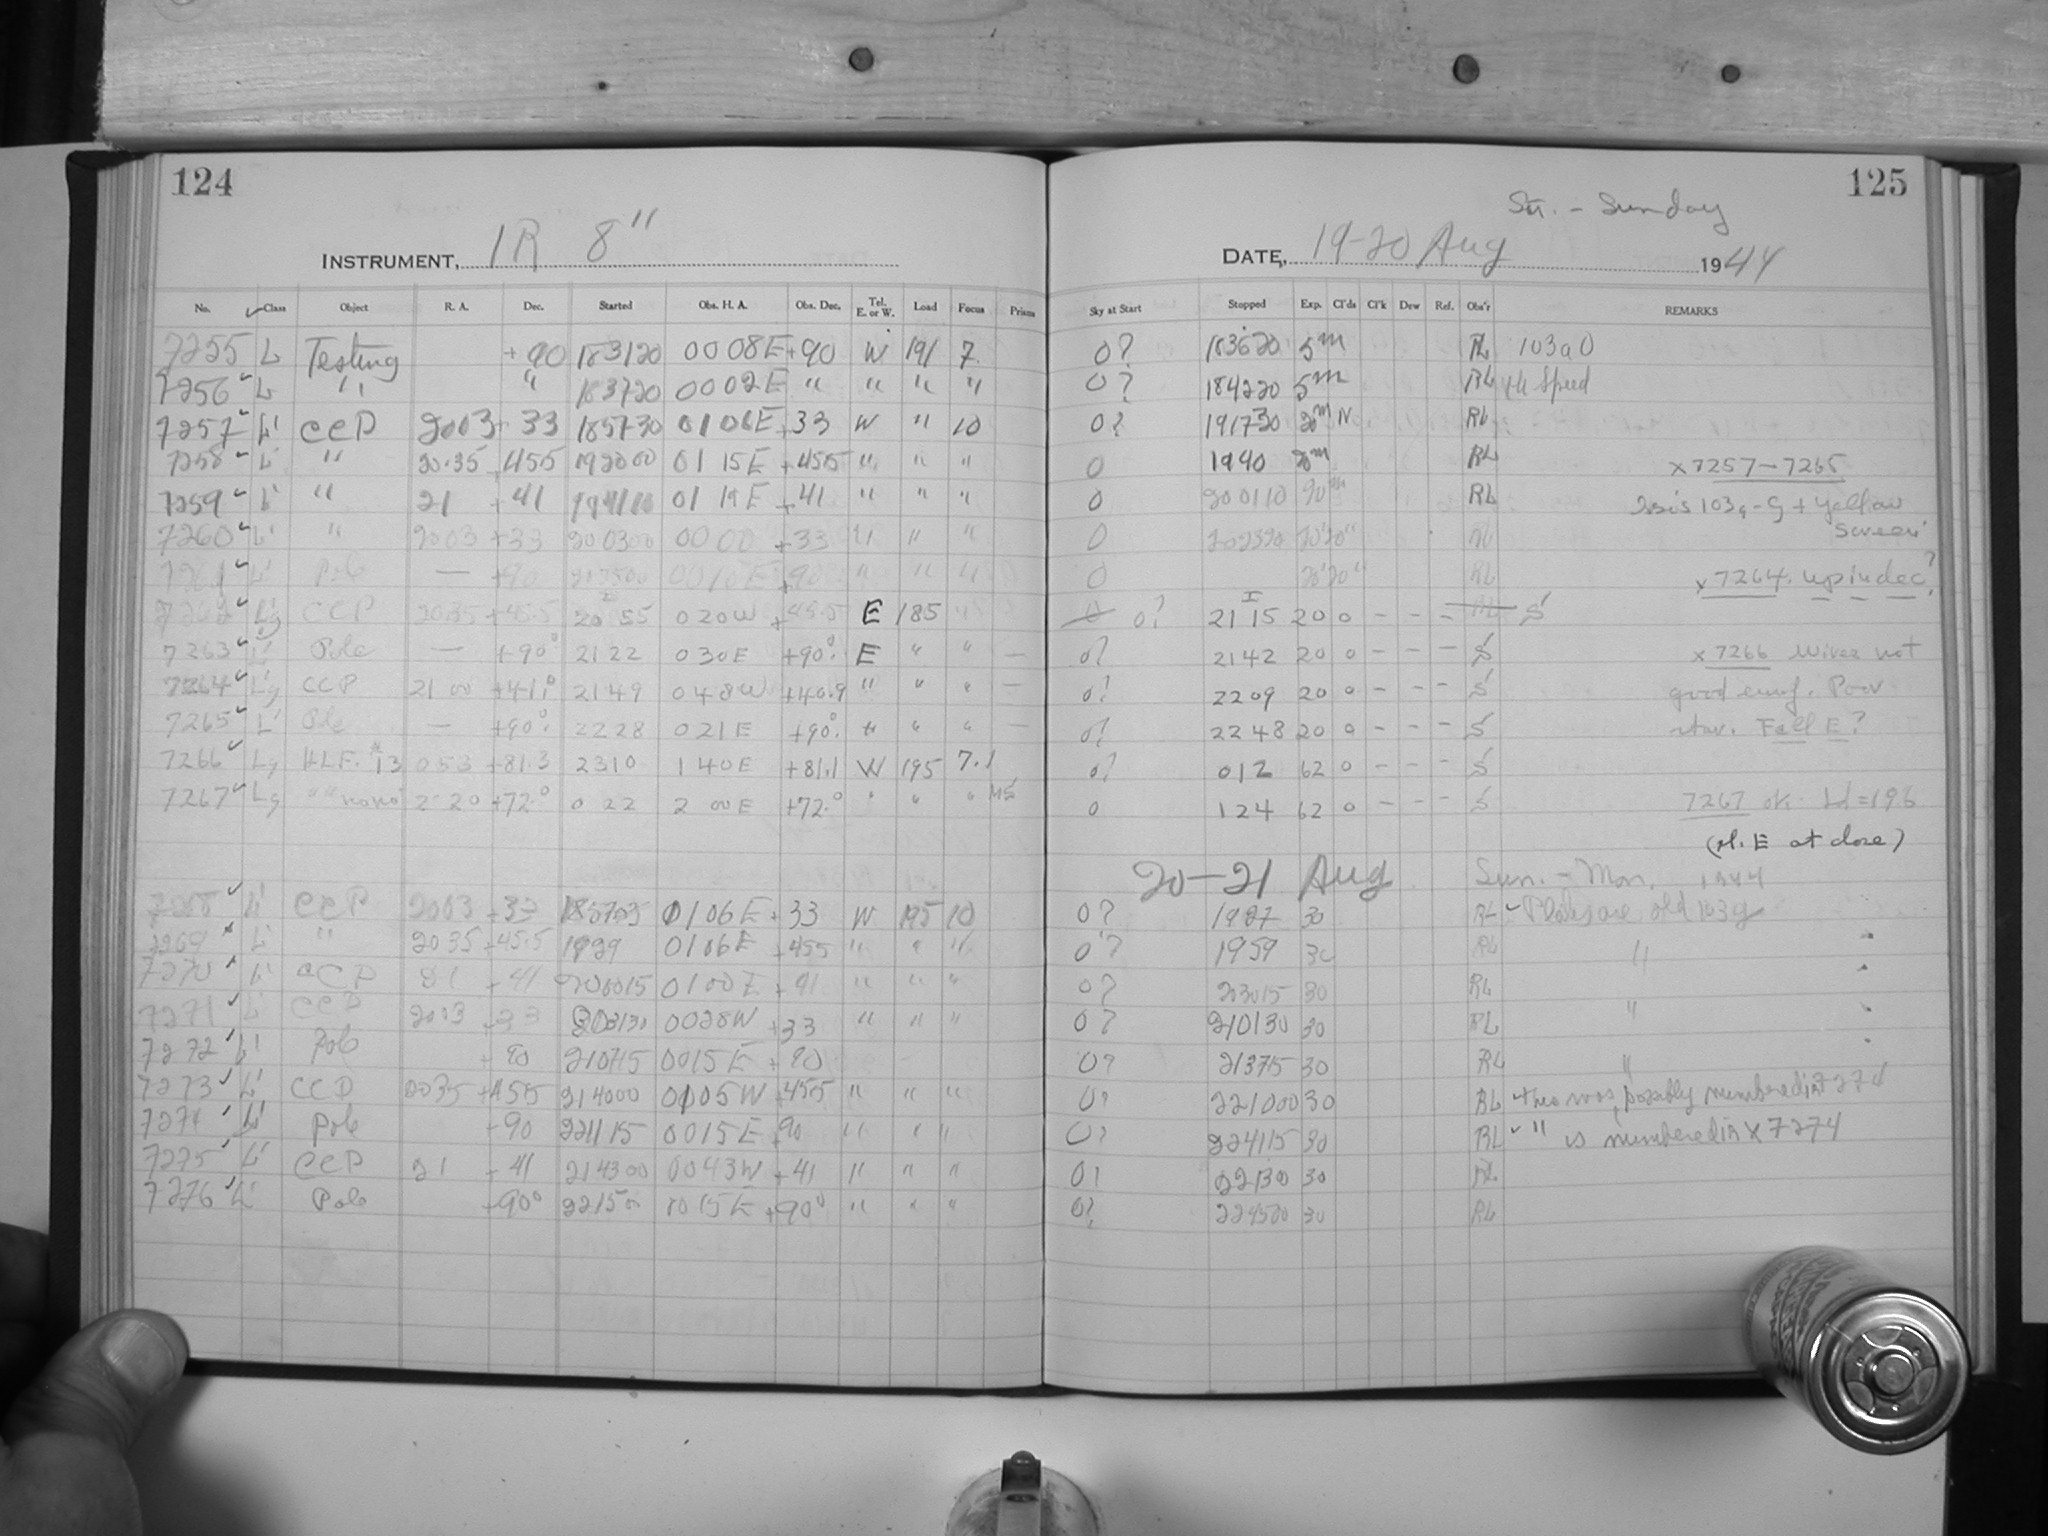 124
INSTRUMENT, IR 8"
No. Class Object R. A. Dec. Started Obs. H. A. Obs. Dec. Tel. E. or W. Load Focus Prism
7255 L Testing +90 183120 0008E +90 W 191 7.
7256 L " " 183720 0002E " " " "
7257 L' CCP 2003 +33 185730 0106E +33 W " 10
7258 L' " 20.35 +455 192000 0115E +455 " " "
7259 L' " 21 +41 0119E +41 " " "
7260 L' " 2003 +33 200300 0000 +33 " " "
7261 L' Pole — +90 0010E +90 " " "
7262 Lg CCP 2035 +45.5 2055 020W +45.5 E 185 "
7263 L' Pole — +90° 2122 030E +90° E " " —
7264 L'g CCP 2100 +41.0 2149 048W +40.9 " " " —
7265 L' Pole — +90° 2228 021E +90° " " " —
7266 Lg H.L.F. #13 053 +81.3 2310 140E +81.1 W 195 7.1
7267 Lg " " 2 20 +72.0 022 200E +72.0 " " "
7268 L' CCP 2003 +33 185755 0106E +33 W 195 10
7269 L' " 2035 +45.5 1929 0106E +455 " " "
7270 L' CCP 21 +41 200015 0100E +41 " " "
7271 L' CCP 2003 +33 203130 0028W +33 " " "
7272 L' Pole +90 210715 0015E +90
7273 L' CCP 2035 +455 214000 0105W +455 " " "
7274 L' Pole +90 221115 0015E +90 " " "
7275 L' CCP 21 +41 214300 0043W +41 " " "
7276 L' Pole +90° 221500 0015E +90° " " "
125
Sat. - Sunday
DATE, 19-20 Aug 1944
Sky at Start Stopped Exp. Cl'ds Cl'k Dew Ref. Obs'r REMARKS
0? 183620 5m RL 103aO
0? 184220 5m RL Hi Speed
0? 191730 20m N RL
0 1940 20m RL x 7257–7265
0 200110 20m RL Isis 103a-G + yellow
0 202320 20'20" RL Screen
0 20'20" RL x 7264. up in dec?
0? 2115 20 0 – – – S
0? 2142 20 0 – – – S x 7266 wires not
0? 2209 20 0 – – – S good enuf. Poor
0? 2248 20 0 – – – S star. Fell E?
0? 012 62 0 – – – S
0 124 62 0 – – – S 7267 ok. Ld=196
(sl. E at close)
20–21 Aug Sun. – Mon. 1944
0? 1927 30 RL Plates are old 103g
0? 1959 30 RL "
0? 203015 30 RL
0? 210130 30 RL "
0? 213715 30 RL "
0? 221000 30 RL This was possibly numbered in 7274
0? 224115 30 RL " is numbered in X 7274
0? 30 RL
0? 224500 30 RL